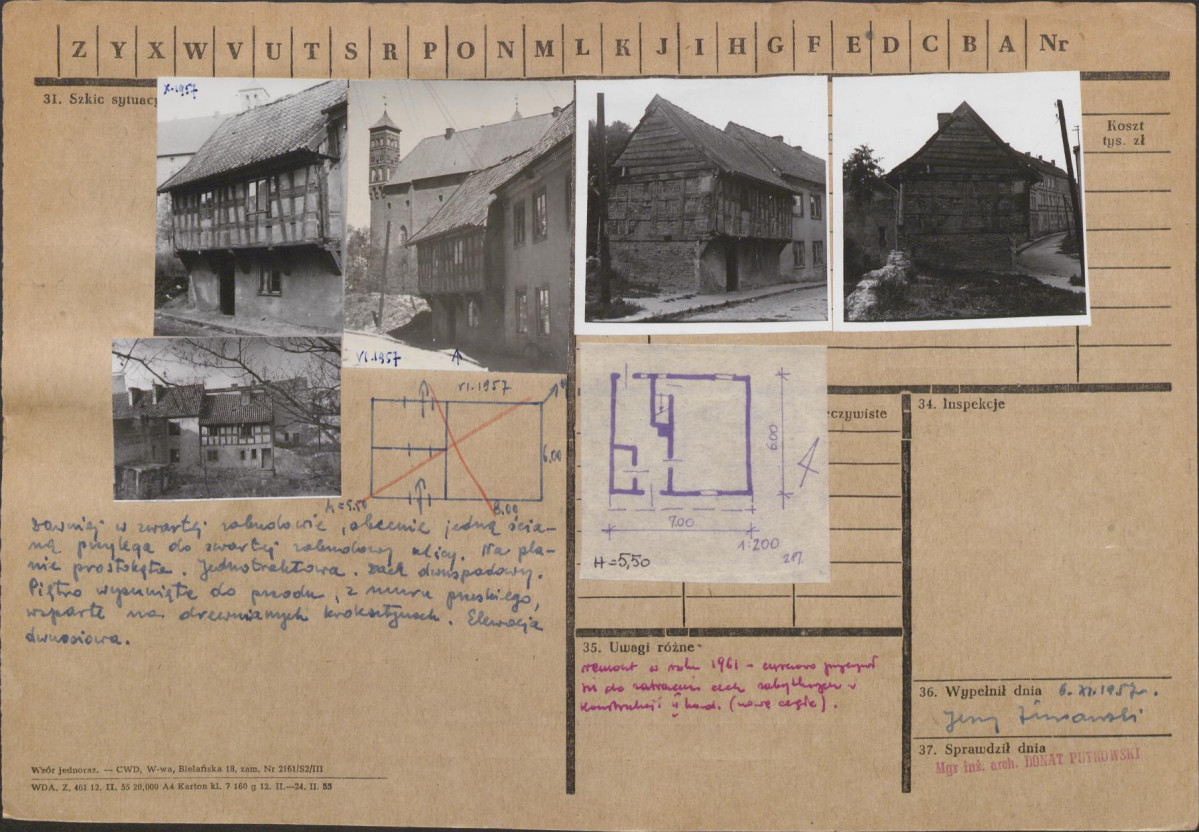 Z Y X W V U T S R P O N M L K J I H G F E D C B A Nr
31. Szkic sytuac
X-1957
VI.1957
VI.1957
Koszt
tys. zł
eczywiste
34. Inspekcje
6,00
h=5.50
8,00
6.00
7.00
1:200
H=5,50
Dawniej w zwartej zabudowie, obecnie jedną ścia-
ną przylega do zwartej zabudowy ulicy. Na pla-
nie prostokąta. Jednotraktowa. Dach dwuspadowy.
Piętro wysunięte do przodu, z muru pruskiego,
wsparte na drewnianych kroksztynach. Elewacja
dwuosiowa.
35. Uwagi różne
remont w roku 1961 -
do zatracenia cech zabytkowych w
konstrukcji II kond. (nowe cegła).
36. Wypełnił dnia 6.XI.1957r.
Jerzy
37. Sprawdził dnia
Mgr inż. arch. DONAT PUTKOWSKI
Wzór jednoraz. — CWD, W-wa, Bielańska 18, zam. Nr 2161/S2/III
WDA. Z. 461 12. II. 55 20,000 A4 Karton kl. 7 160 g 12. II.—24. II. 55